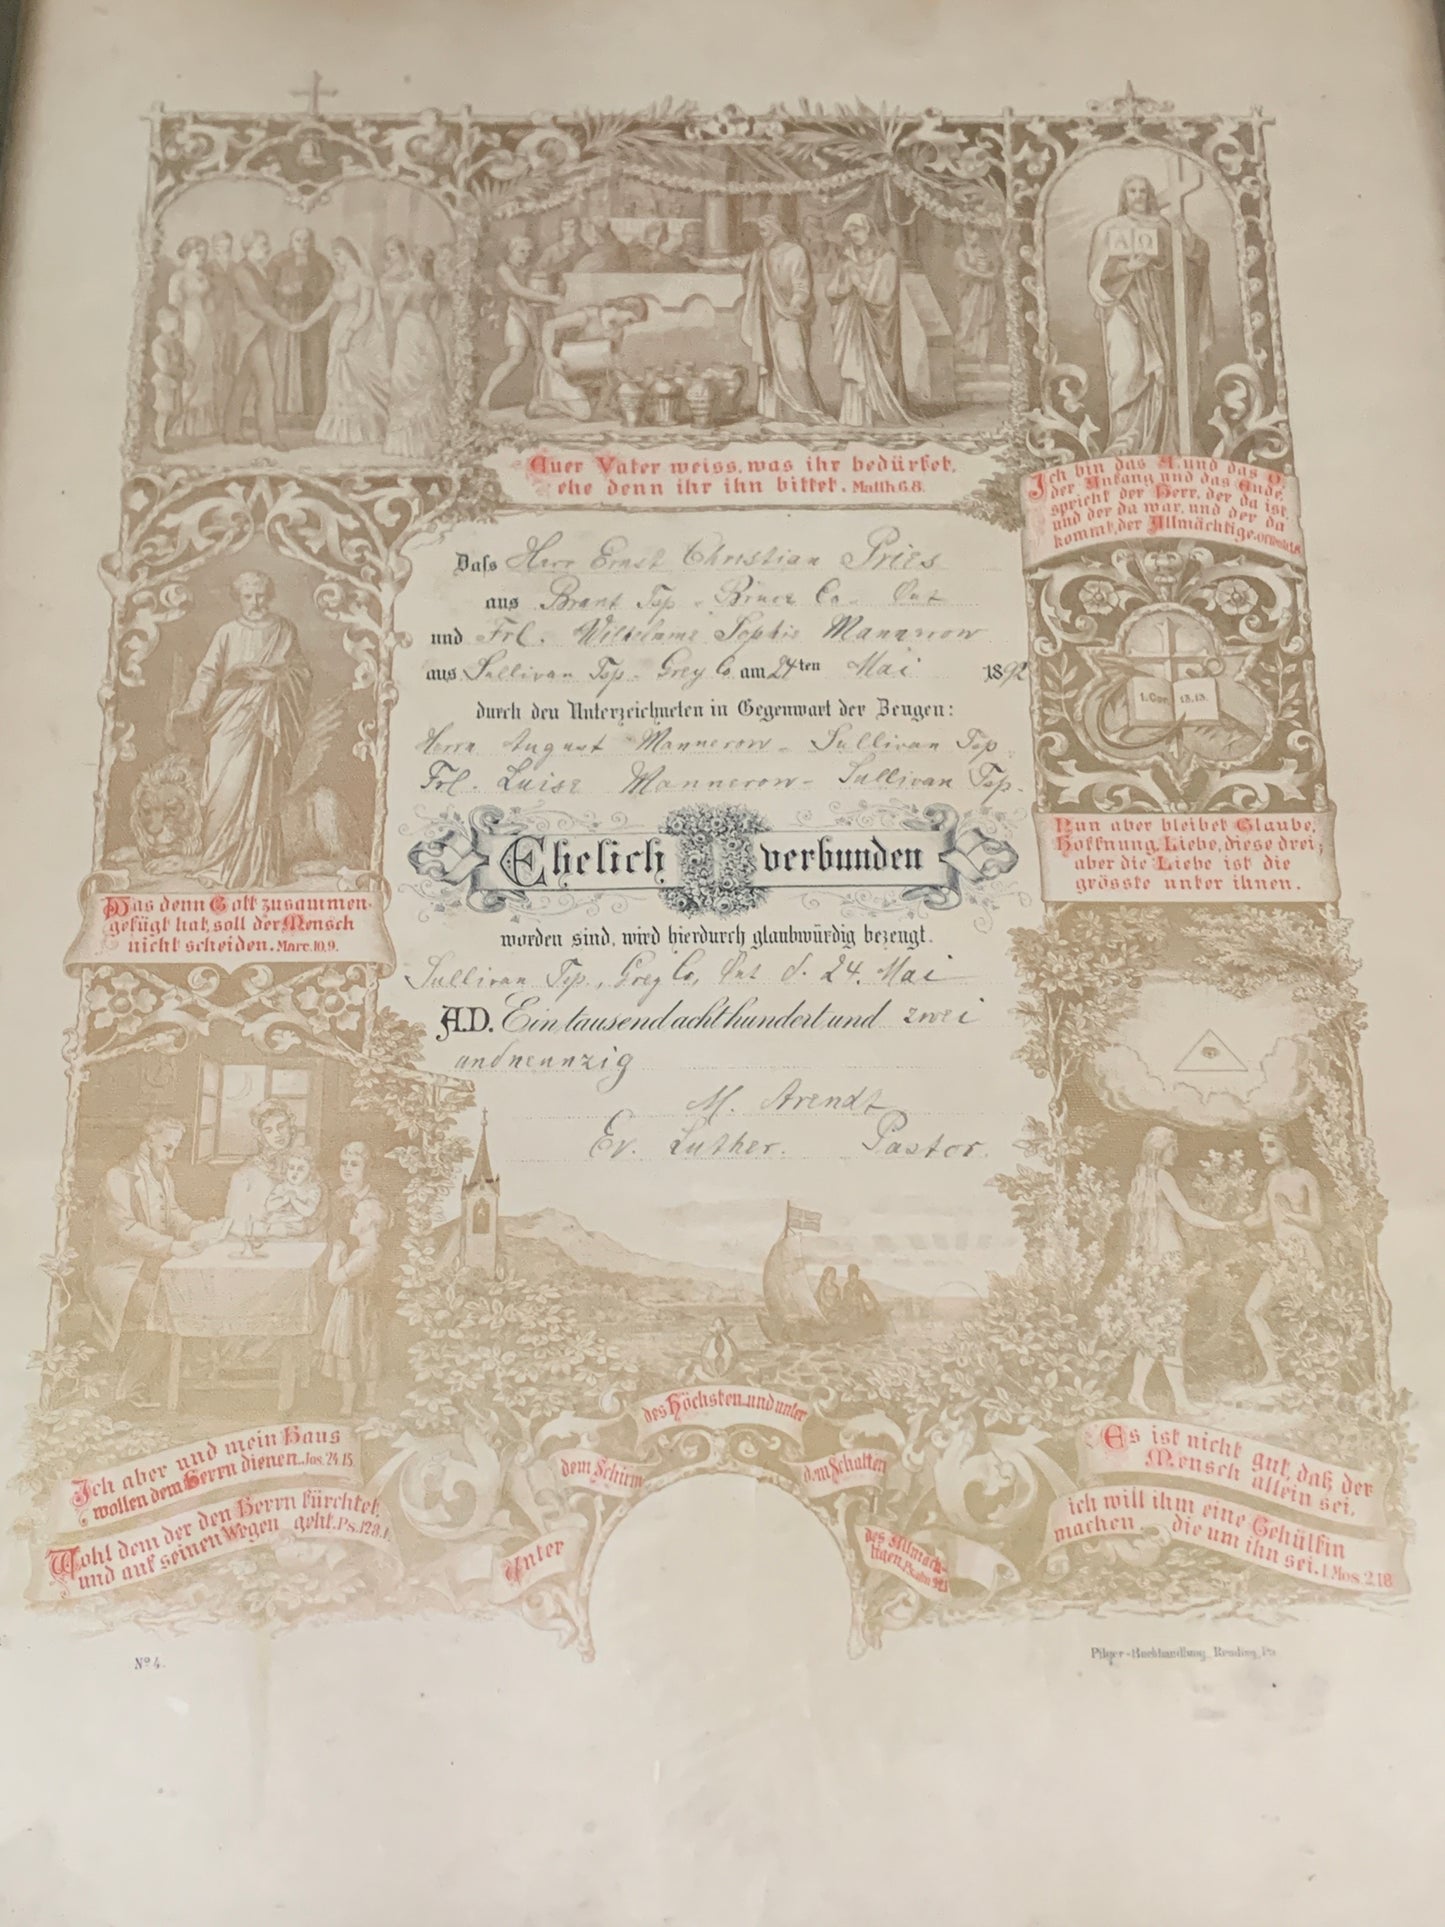 A Ω
Euer Vater weiss, was ihr bedürfet,
ehe denn ihr ihn bittet. Matth.6.8.
Ich bin das A. und das O.
der Anfang und das Ende,
spricht der Herr, der da ist,
und der da war, und der da
kommt, der Allmächtige.
Daſs Herr Ernst Christian Pries
aus Brant Tsp. Bruce Co. Ont
und Frl. Wilhelmine Sophie Mannerow
aus Sullivan Tsp. Grey Co am 24ten Mai 1892
durch den Unterzeichneten in Gegenwart der Zeugen:
Herrn August Mannerow - Sullivan Tsp
Frl. Luise Mannerow - Sullivan Tsp.
Ehelich verbunden
worden sind, wird hierdurch glaubwürdig bezeugt.
Sullivan Tsp., Grey Co, Ont d. 24. Mai
A.D. Ein tausend acht hundert und zwei
undneunzig
M. Arendt
Ev. Luther. Pastor.
1.Cor. 13.13.
Nun aber bleibet Glaube,
Hoffnung, Liebe, diese drei;
aber die Liebe ist die
grösste unter ihnen.
Was denn Gott zusammen-
gefügt hat, soll der Mensch
nicht scheiden. Marc.10,9.
Ich aber und mein Haus
wollen dem Herrn dienen. Jos. 24.15.
Wohl dem der den Herrn fürchtet,
und auf seinen Wegen geht. Ps.128.1.
Unter
dem Schirm
des Höchsten und unter
dem Schatten
des Allmäch-
tigen. Psalm 91.1
Es ist nicht gut, daß der
Mensch allein sei,
ich will ihm eine Gehülfin
machen die um ihn sei. 1 Mos. 2.18
No 4.
Pilger-Buchhandlung, Reading, Pa